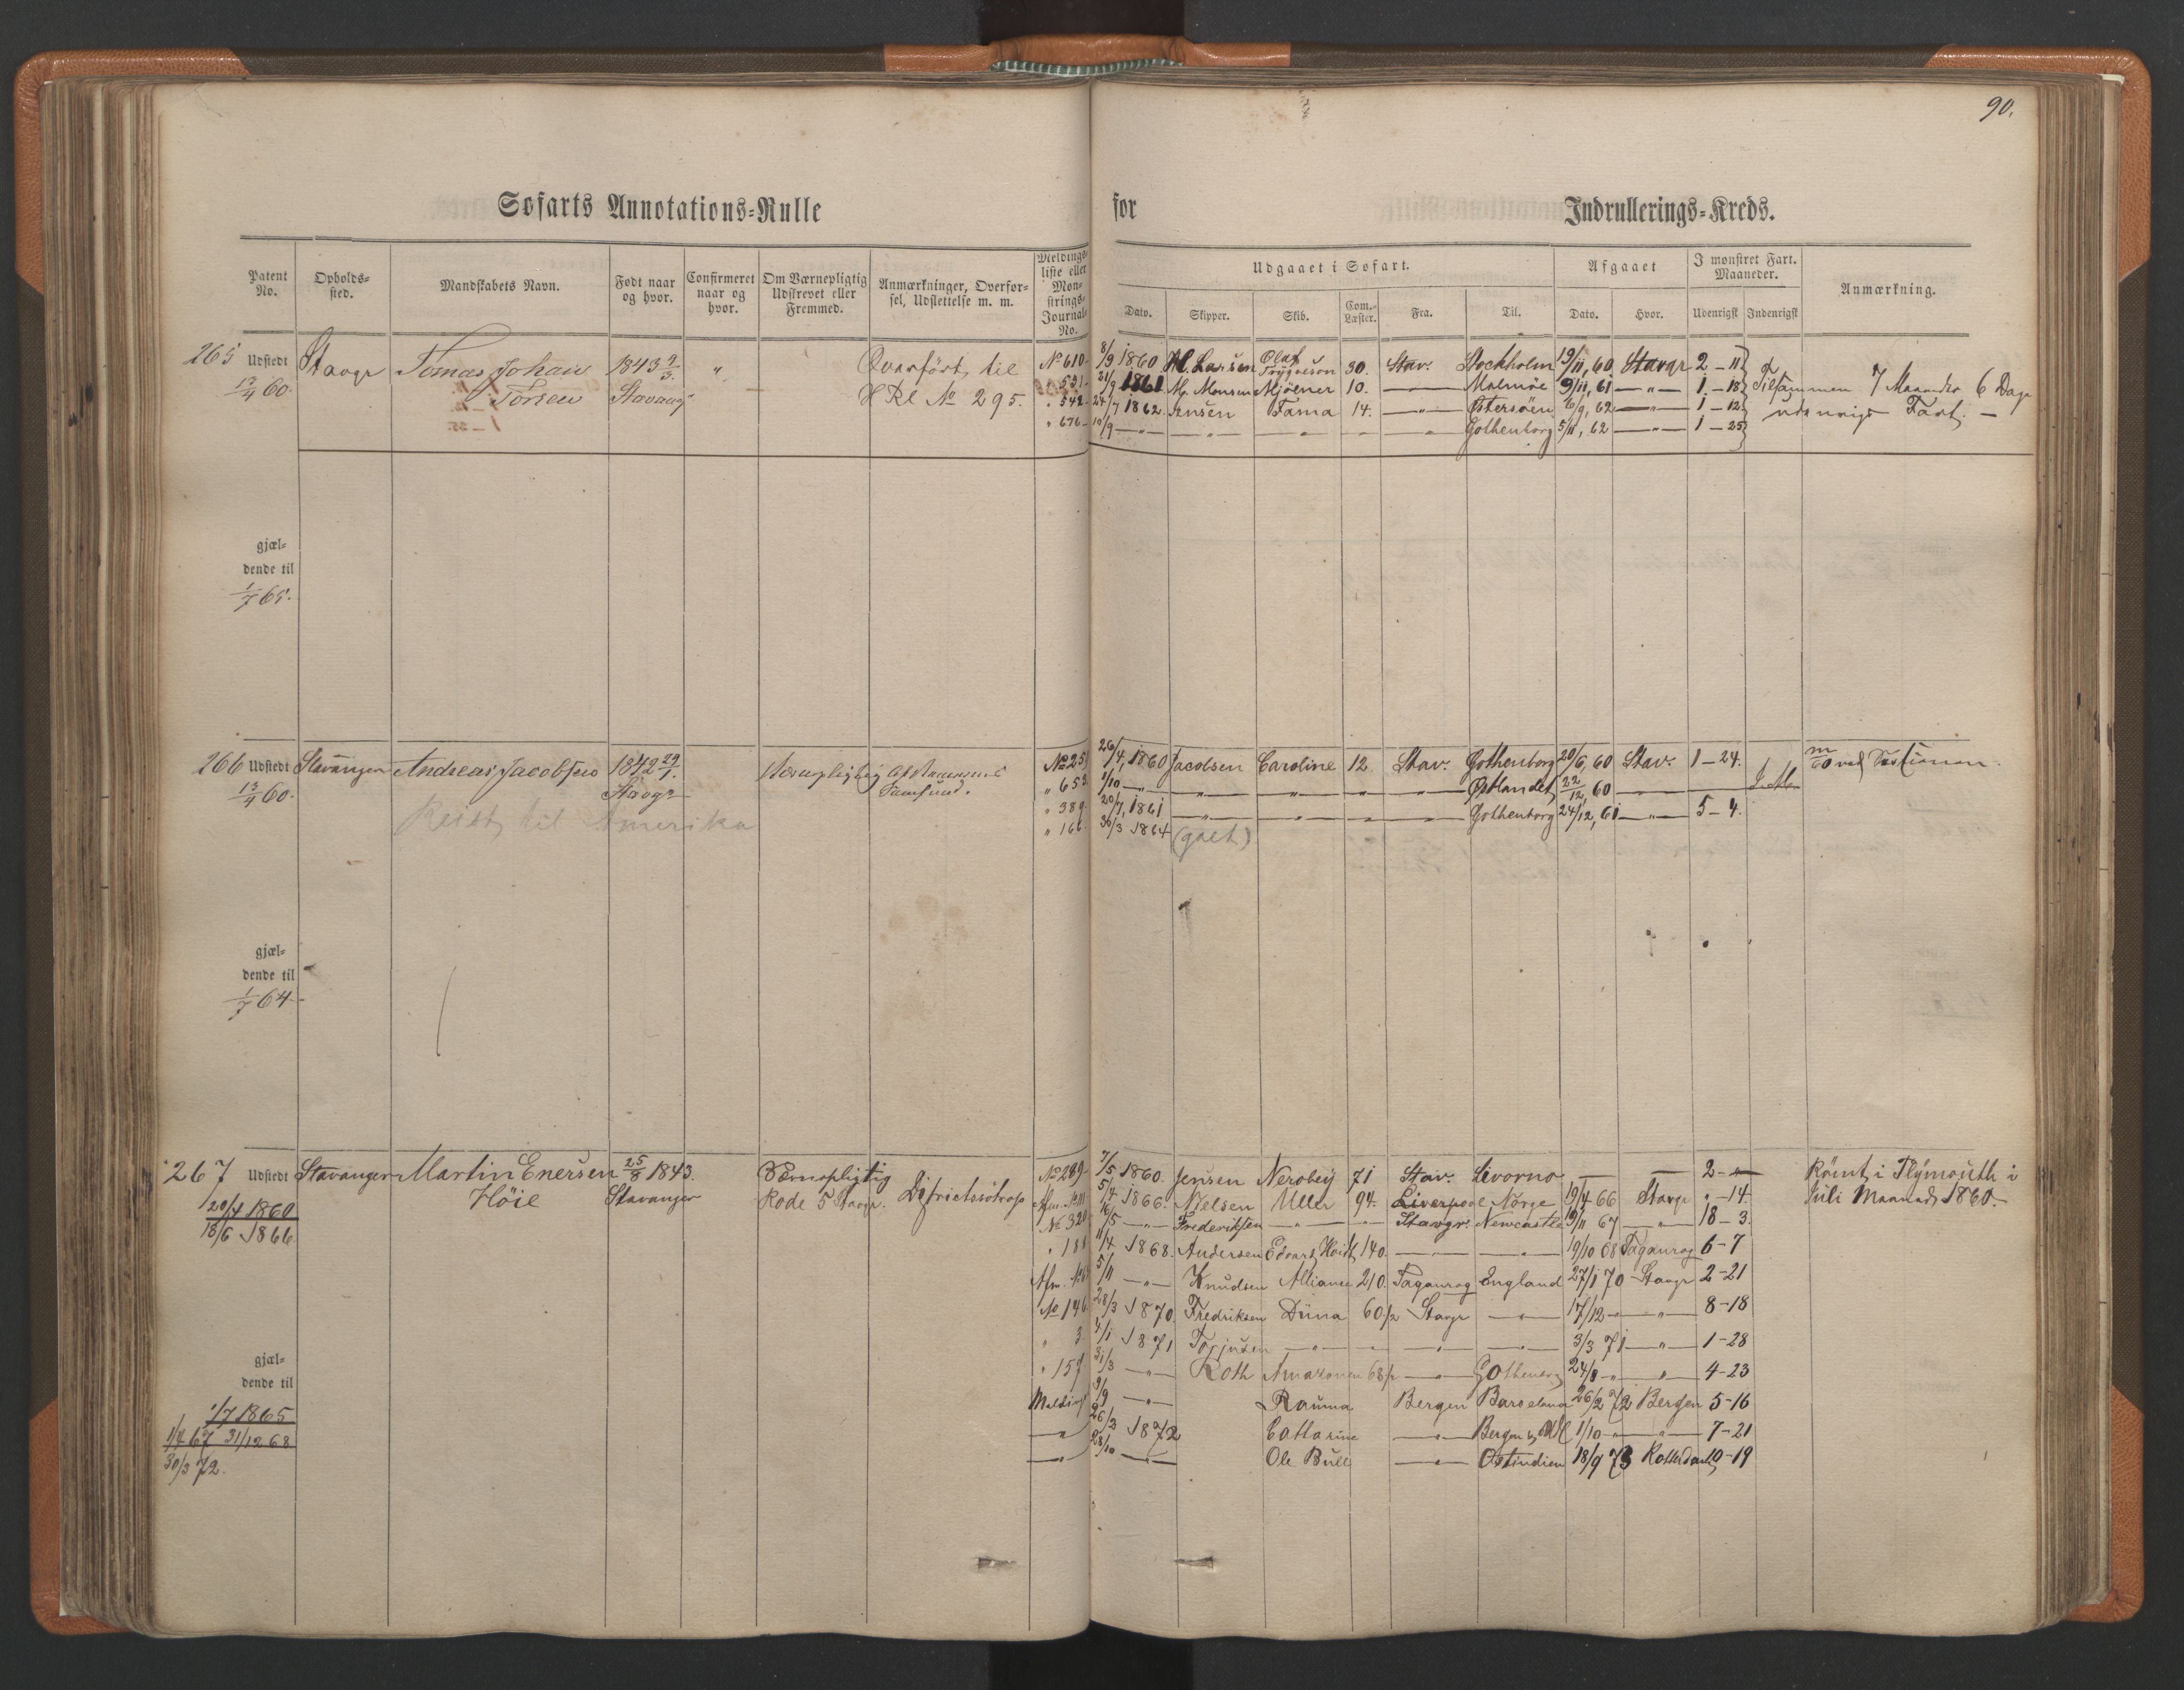 90.
Søfarts Annotations-Rulle for Indrullerings-Kreds.
Patent No. Opholds-sted. Mandskabets Navn. Født naar og hvor. Confirmeret naar og hvor. Om Værnepligtig Udskrevet eller Fremmed. Anmærkninger, Overførsel, Udslettelse m. m. Meldings-liste eller Mon-strings-Journal-No.
Udgaaet i Søfart. Afgaaet I mønstret Fart. Maaneder. Anmærkning.
Dato. Skipper. Skib. Com.-Læster. Fra. Til. Dato. Hvor. Udenrigsk Indenrigsk
265 Udstedt Stavgr Tomas Johan 1843 9/3. " Overført til No 610 8/9 1860 M. Larsen Olaf Trygveson 30. Stav. Stockholm 19/11, 60 Stavgr 2-11
13/4 60. Torsen Stavang H Rl No 295. " 531 31/9 1861 M. Monsen Mjölner 10. —"— Malmøe 9/11, 61 —"— 1-18 Tilsammen 7 Maaneder 6 Dage
" 542 24/7 1862 Jensen Fama 14. —"— Østersöen 6/9, 62 —"— 1-12 udenrigs Fart. —
" 676 10/9 —"— —"— —"— —"— Gothenborg 5/11, 62 —"— 1-25
gjæl-
dende til
1/7 65.
266 Udstedt Stavanger Andreas Jacobsen 1842 29/1. Værnepligtig No 251 26/4, 1860 Jacobsen Caroline 12. Stav. Gothenborg 20/6, 60 Stav. 1-24.
13/4 60. Stavgr Samfund. " 653 1/10 —"— —"— —"— —"— —"— Østlandet 22/12, 60 —"—
Reist til Amerika " 389 20/7, 1861 —"— —"— —"— —"— Gothenborg 24/12, 61 —"— 5-4.
" 166 30/3 1864 (galt)
gjæl-
dende til
1/7 64
267 Udstedt Stavanger Martin Enersen 25/8 1843. Værnepligtig No 289 7/5 1860. Jensen 71 Stav. Livorno — — 2-"- Römt i Plymouth i
20/4 1860 Höie Stavanger Rode 5 Stavgr. Afm. No 111 5/4 1866. Nielsen Uller 94. Liverpool Norge 19/4 66 Stavgr "-14. Juli Maaned 1860.
18/6 1866 No 320 16/5 —"— Frederiksen —"— —"— Stavgr. Newcastle 19/11 67 —"— 18-3.
" 181 11/4 1868. Andersen 140. —"— —"— 19/10 68 Taganrog 6-7
Afm. 5/11 —"— Knudsen Alliance 210. Taganrog England 27/1 70 Stavgr 2-21
No 146 28/3 1870. Fredriksen Düna 60½ Stavgr —"— 17/12 —"— —"— 8-18
" 3 4/1 1871 Torjusen —"— —"— —"— —"— 3/3 71 —"— 1-28
" 157 31/3 —"— Roth Amazonen 68½ —"— Gothenborg 24/8 —"— —"— 4-23
gjæl-
dende til
1/7 1865 9/9 —"— Rauma Bergen Barcelona 26/2 72 Bergen 5-16
1/4 67 31/12 68 —"— 26/3 1872 Catharine —"— Bergen 1/10 —"— —"— 7-21
30/3 72. —"— 28/10 —"— Ole Bull —"— Ostindien 18/9 73 Rotterdam 10-19